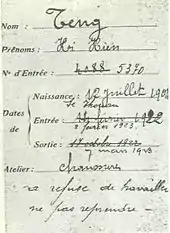 Nom : Teng
Prénoms : Hi Hien
N° d'Entrée : 1088 5370
Naissance : 12 Juillet 1904
Dates de
Entrée : 14 février 1922
2 février 1923
Sortie : 17 octobre 1922
7 mars 1923
Atelier : chaussures
a refusé de travailler
ne pas reprendre -